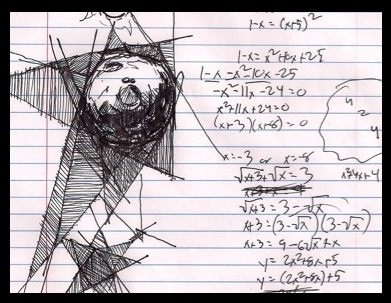 1-x = (x+5)²
1-x = x²+10x+25
1-x -x²-10x-25
-x²-11x-24=0
x²+11x+24=0
(x+3)(x+8) = 0
x=-3 or x=-8
√x+3+√x = 3
√x+3 = 3-√x
x+3 = (3-√x)(3-√x)
x+3 = 9-6√x+x
y = 2x²+8x+5
y = (2x²+8x)+5
x²+4x+4